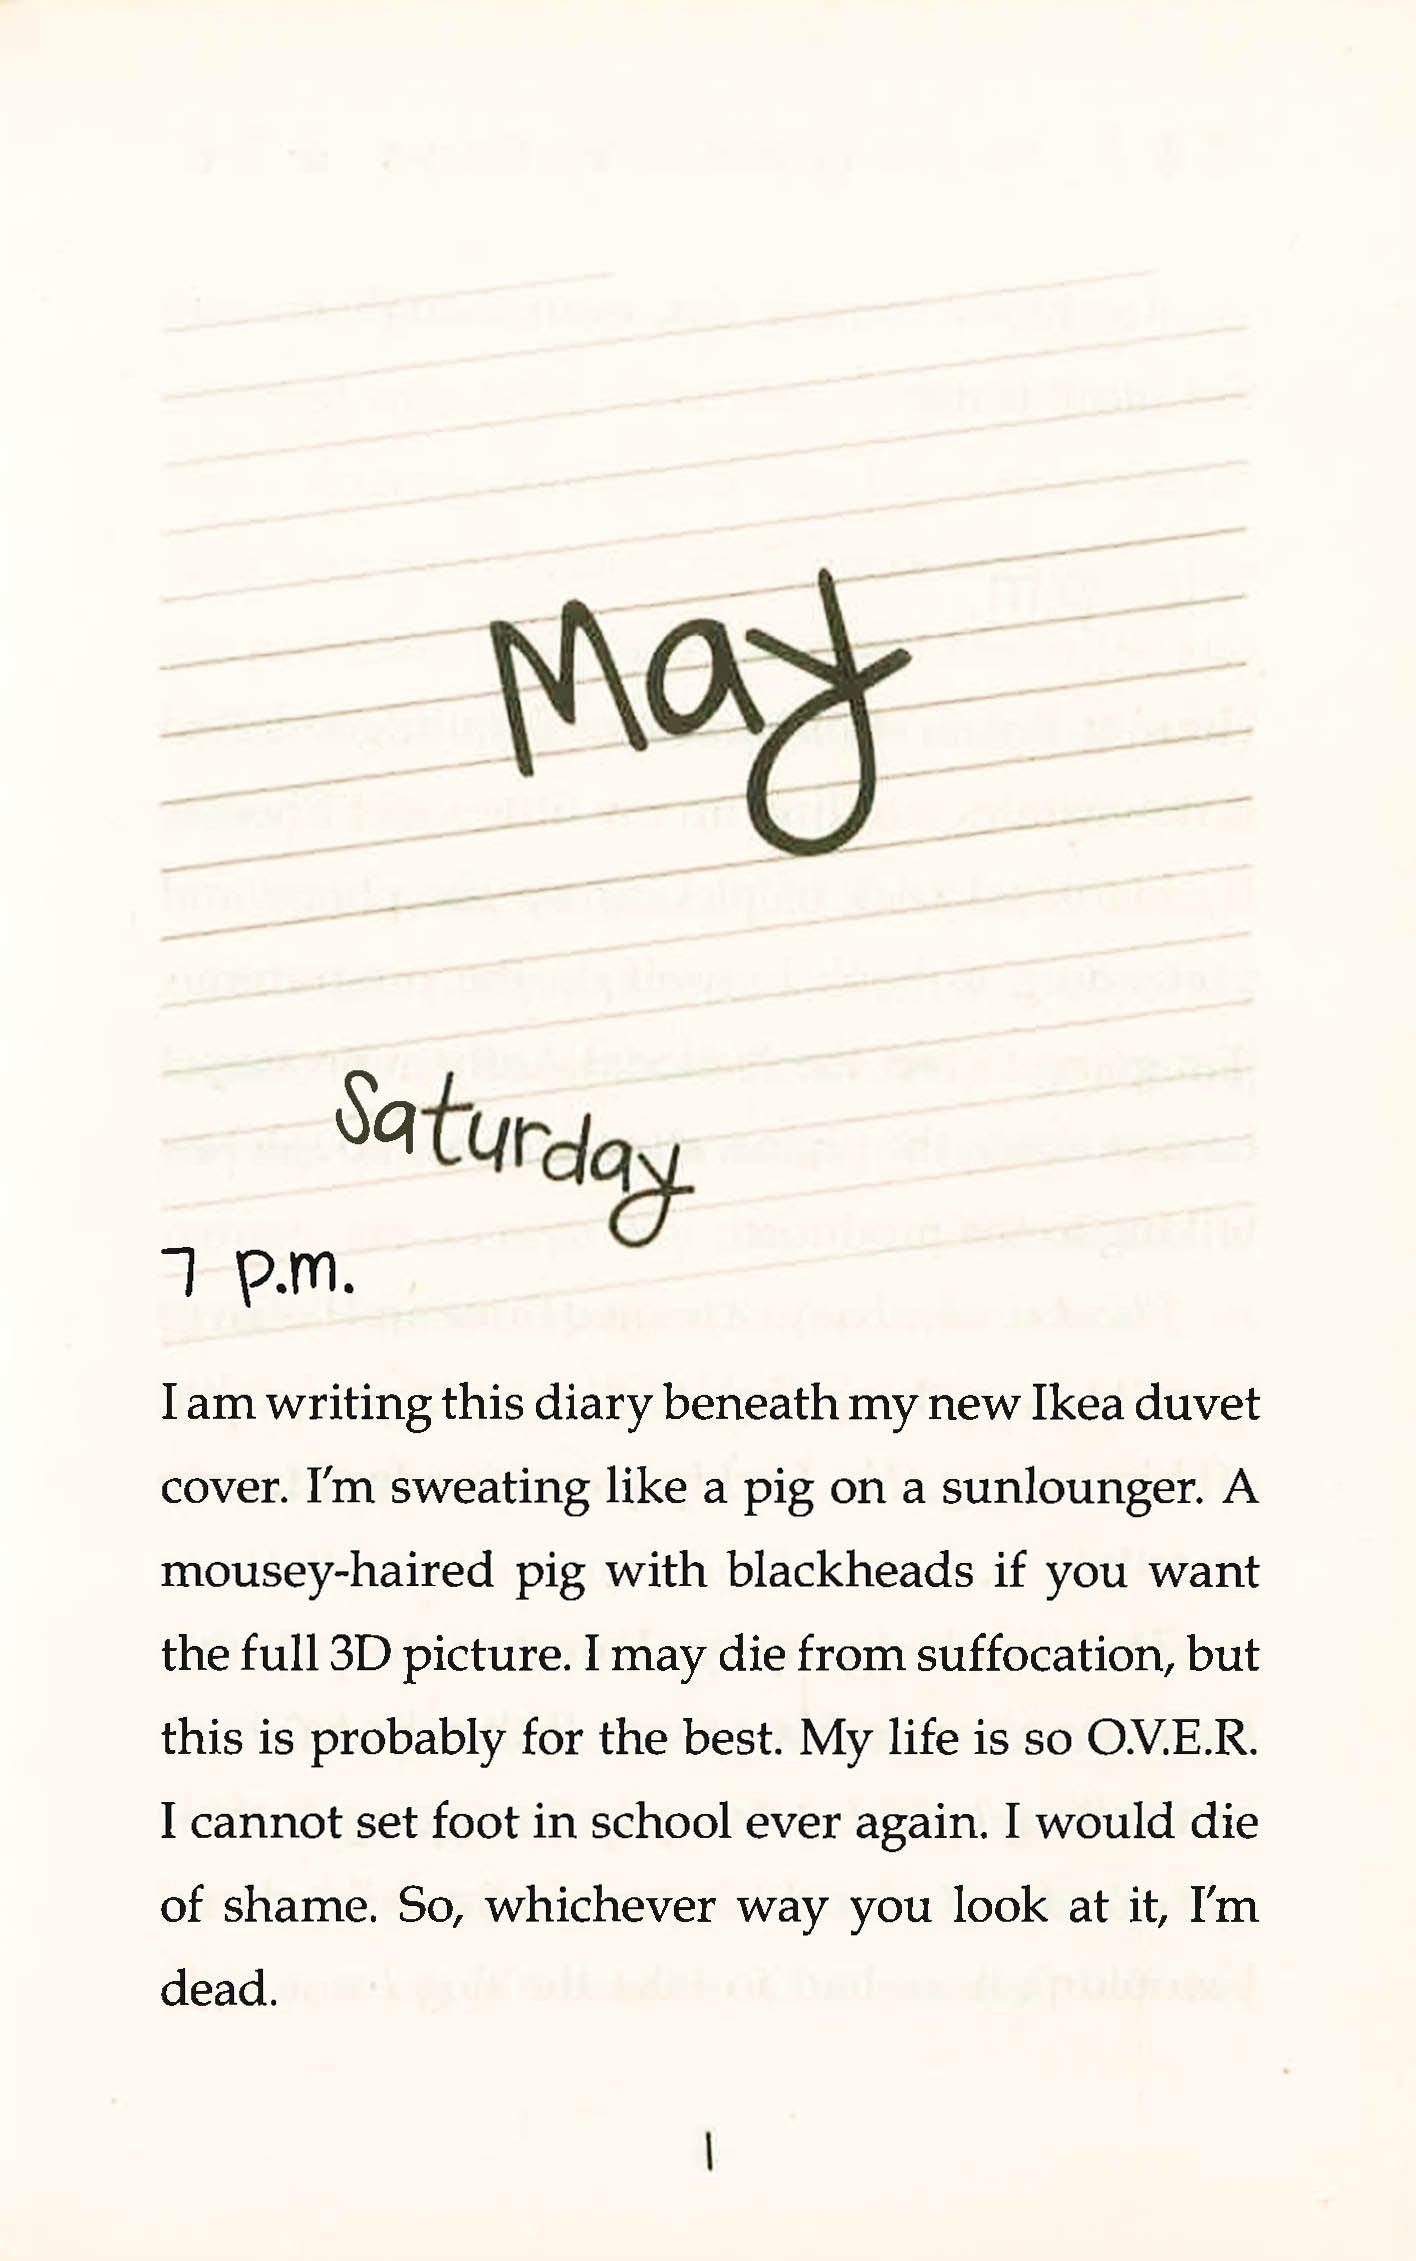 May
Saturday
7 p.m.
I am writing this diary beneath my new Ikea duvet
cover. I'm sweating like a pig on a sunlounger. A
mousey-haired pig with blackheads if you want
the full 3D picture. I may die from suffocation, but
this is probably for the best. My life is so O.V.E.R.
I cannot set foot in school ever again. I would die
of shame. So, whichever way you look at it, I'm
dead.
1